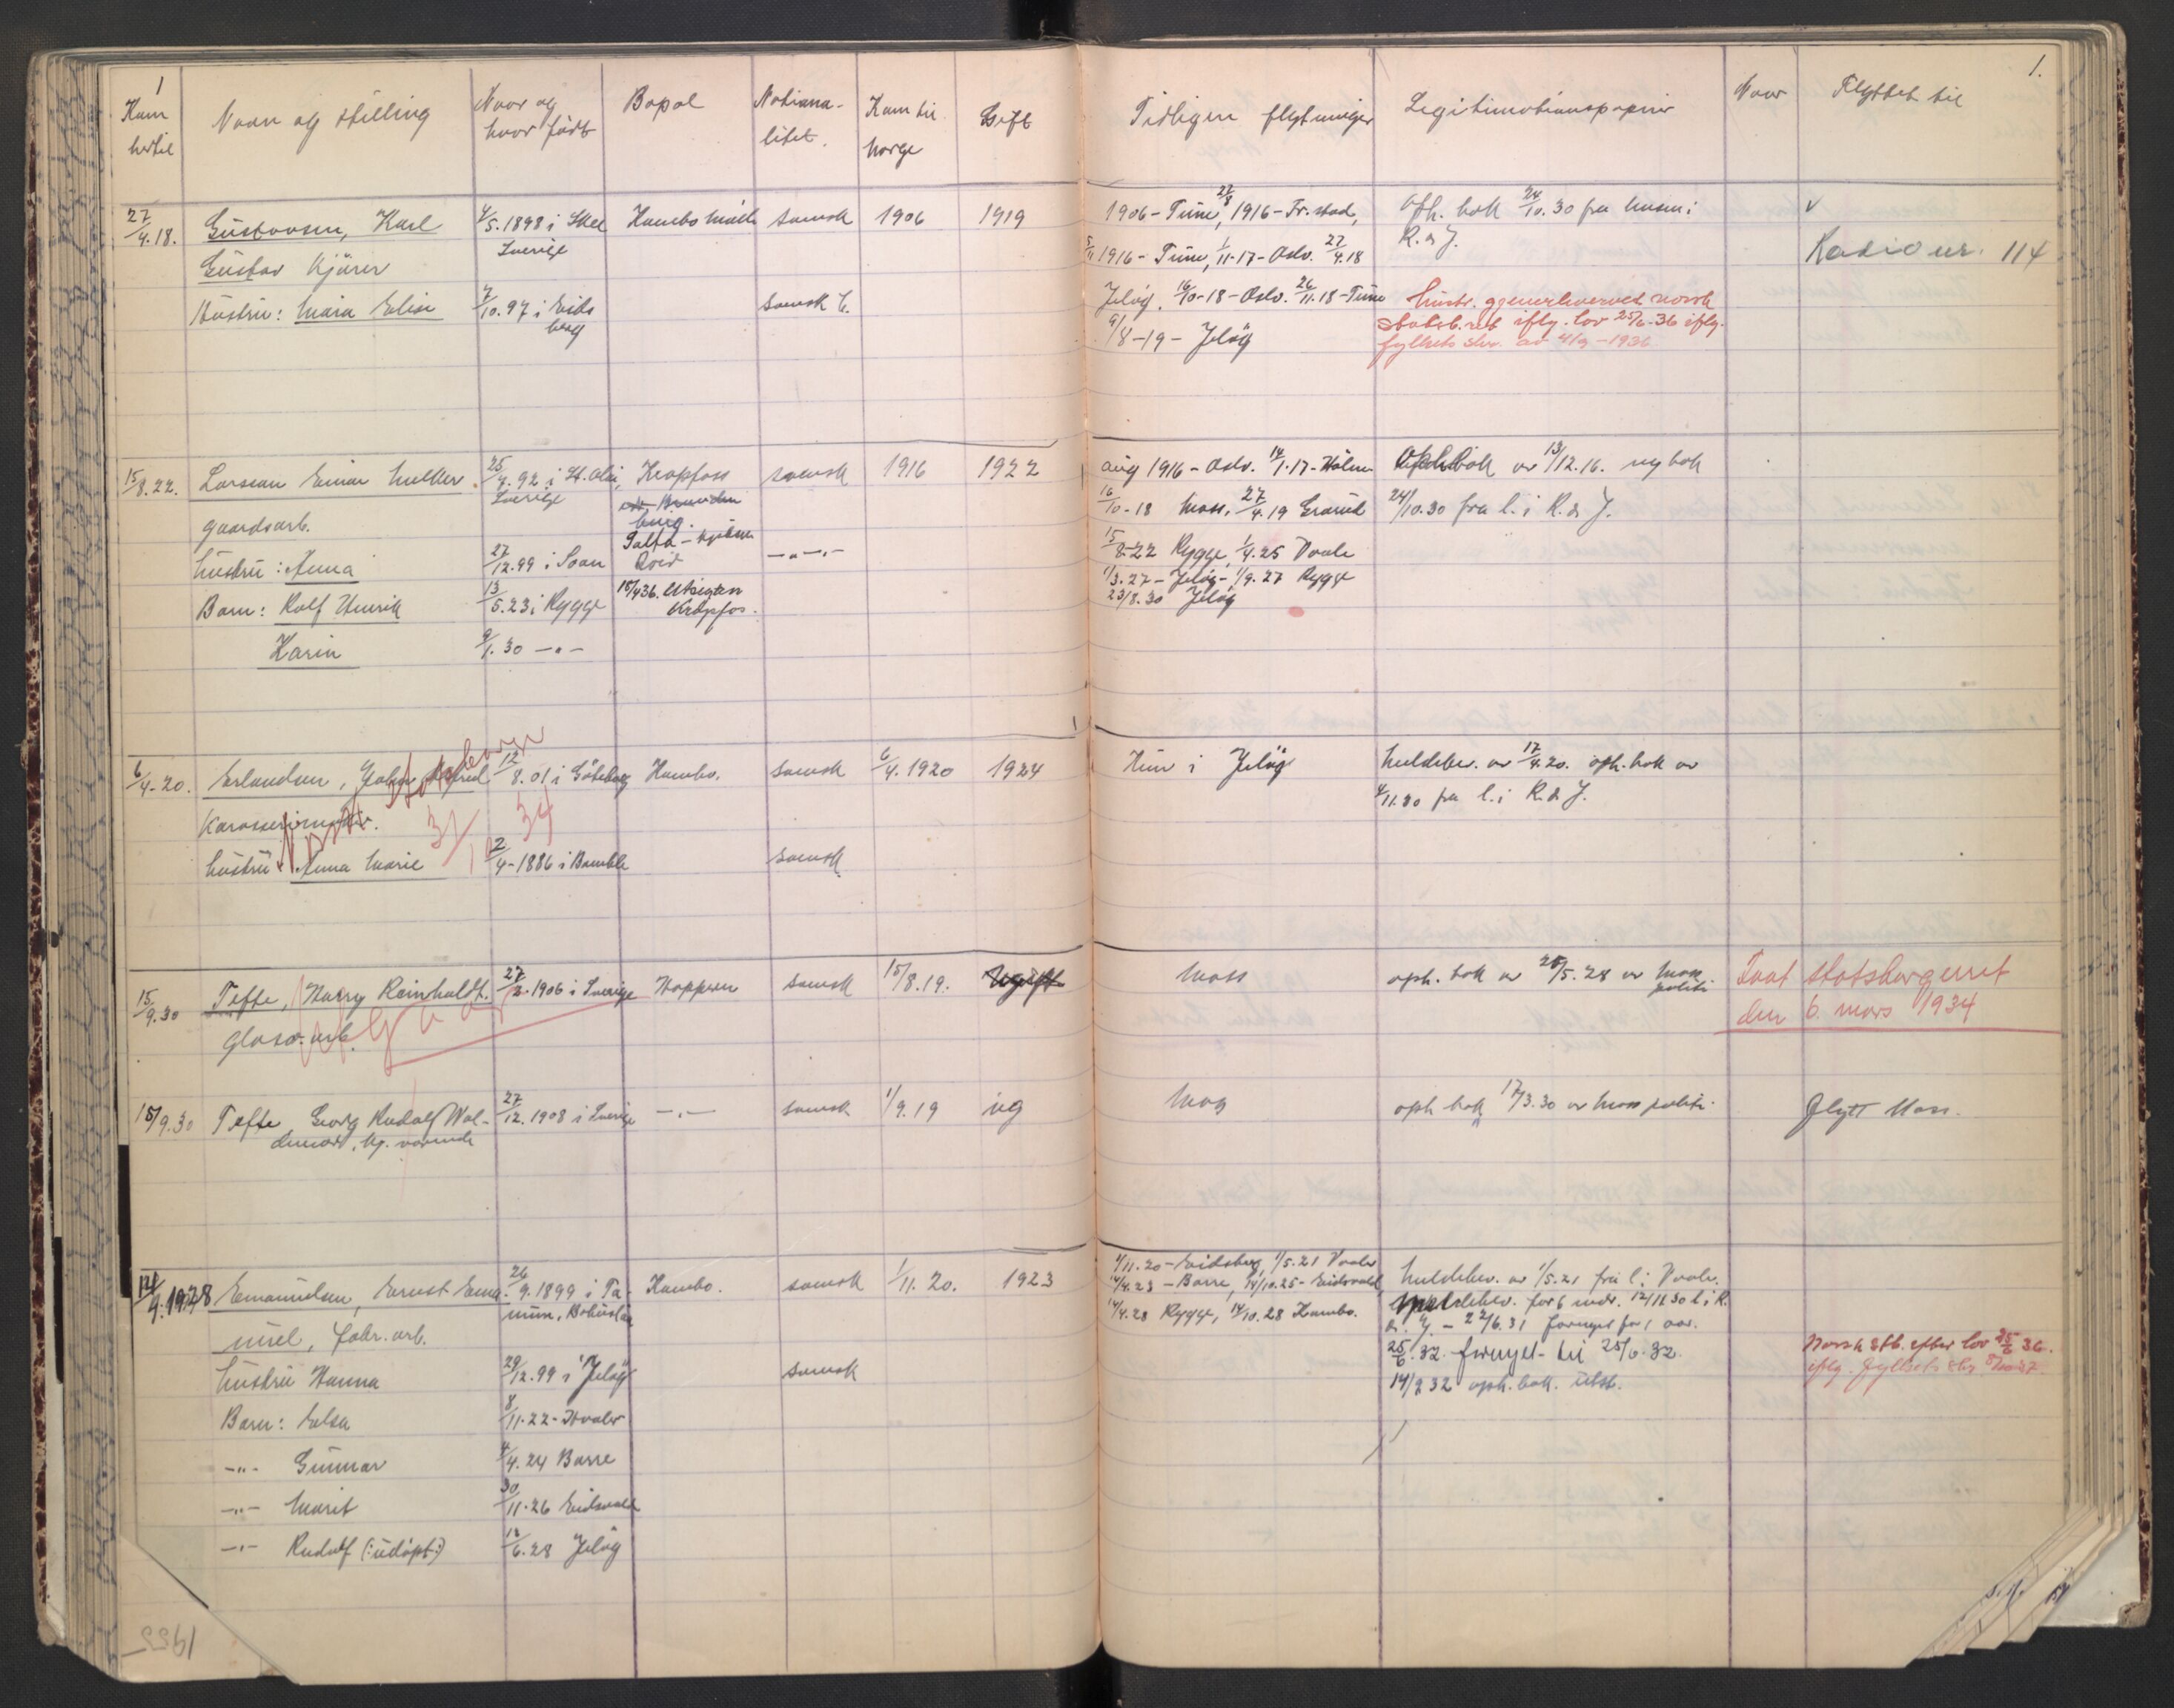 1
Kom hertil
Navn og stilling
Naar og hvor født
Bopæl
Nationalitet.
Kom til Norge
Gift
Tidligere
Legitimationspapirer
Naar
Flyttet til
1.
27/4.18.
Gustavsen, Karl
4/5.1898 i
svensk
1906
1919
1906 - Tune, 27/8 1916 - Fr.stad,
Oph. bok 24/10.30 fra
v
Gustav
Sverige
5/11 1916 - Tune, 1/11-17 - Oslo. 27/4.18
R. & J.
Radio nr. 114
Hustru: Maria Elise
7/10.97 i Eidsberg
Jeløy. 16/10-18 - Oslo. 26/11.18 - Tune
Hustr. gjenerhvervet norsk
statsb.ret iflg. lov 25/6-36 iflg.
9/8-19 - Jeløy
fylkets skr. av
15/8.22.
Larsson Einar
25/4.92 i
Krapfoss
svensk
1916
1922
aug 1916 - Oslo. 14/1.17 -
av 13/12.16. ny bok
gaardsarb.
Sverige
16/10-18 Moss, 27/4.19
24/10.30 fra l. i R. & J.
Hustru: Anna
27/12.99 i
15/8-22 Rygge, 1/4.25 Vaale
Barn: Rolf Henrik
13/5.23 i Rygge
Krapfos.
1/3.27 - Jeløy - 1/9.27 Rygge
23/8.30 Jeløy
Karin
9/1.30 - " -
6/4-20.
Erlandsen, John Alfred
12/8.01 i Göteborg
Kambo.
svensk
6/4.1920
1924
Kun i Jeløy
Meldebev. av 17/4.20. oph. bok av
4/11.30 fra l. i R. & J.
Norsk statsborger
31/10 34
Hustru Anna Marie
2/4-1886 i Bamble
svensk
15/9.30
Tofte, Harry Reinholdt.
27/2.1906 i Sverige
svensk
15/8.19.
Ugift
Moss
oph. bok av 25/5.28 av Moss politi
Faat statsborgerret
den 6. mars 1934
Utgaar
15/9.30
Tofte Georg Rudolf Waldemar,
27/12.1908 i Sverige
- " -
svensk
1/9.19
ug
Mos
oph. bok 17/3.30 av Moss politi.
flytt Moss.
9.1928
Emanuelsen, Ernst Emanuel, fabr. arb.
26/9.1899 i Tanum, Bohuslän
Kambo.
svensk
1/11.20.
1923
1/11.20 - Eidsberg, 1/5.21 Vaaler
14/4.23 - Borre, 14/10.25 - Eidsvold
14/4.28 Rygge, 14/10.28 Kambo.
Meldebev. av 1/5.21 fra l. i Vaaler.
Meldebev. for 6 mdr. 12/11.30 l. i R.
& J. - 22/6.31 fornyet for 1 aar.
25/6.32. fornyet til
14/9 32 oph. bok. utst.
Norsk stb. efter lov 25/6 36.
iflg. fylkets skr.
Hustru Hanna
29/12.99 i Jeløy
svensk
Barn: Elsa
8/11.22 -
- " - Gunnar
4/4.24 Borre
- " - Marit
30/11.26 Eidsvold
- " - Rudolf (: udøpt :)
6.28 Jeløy
1933